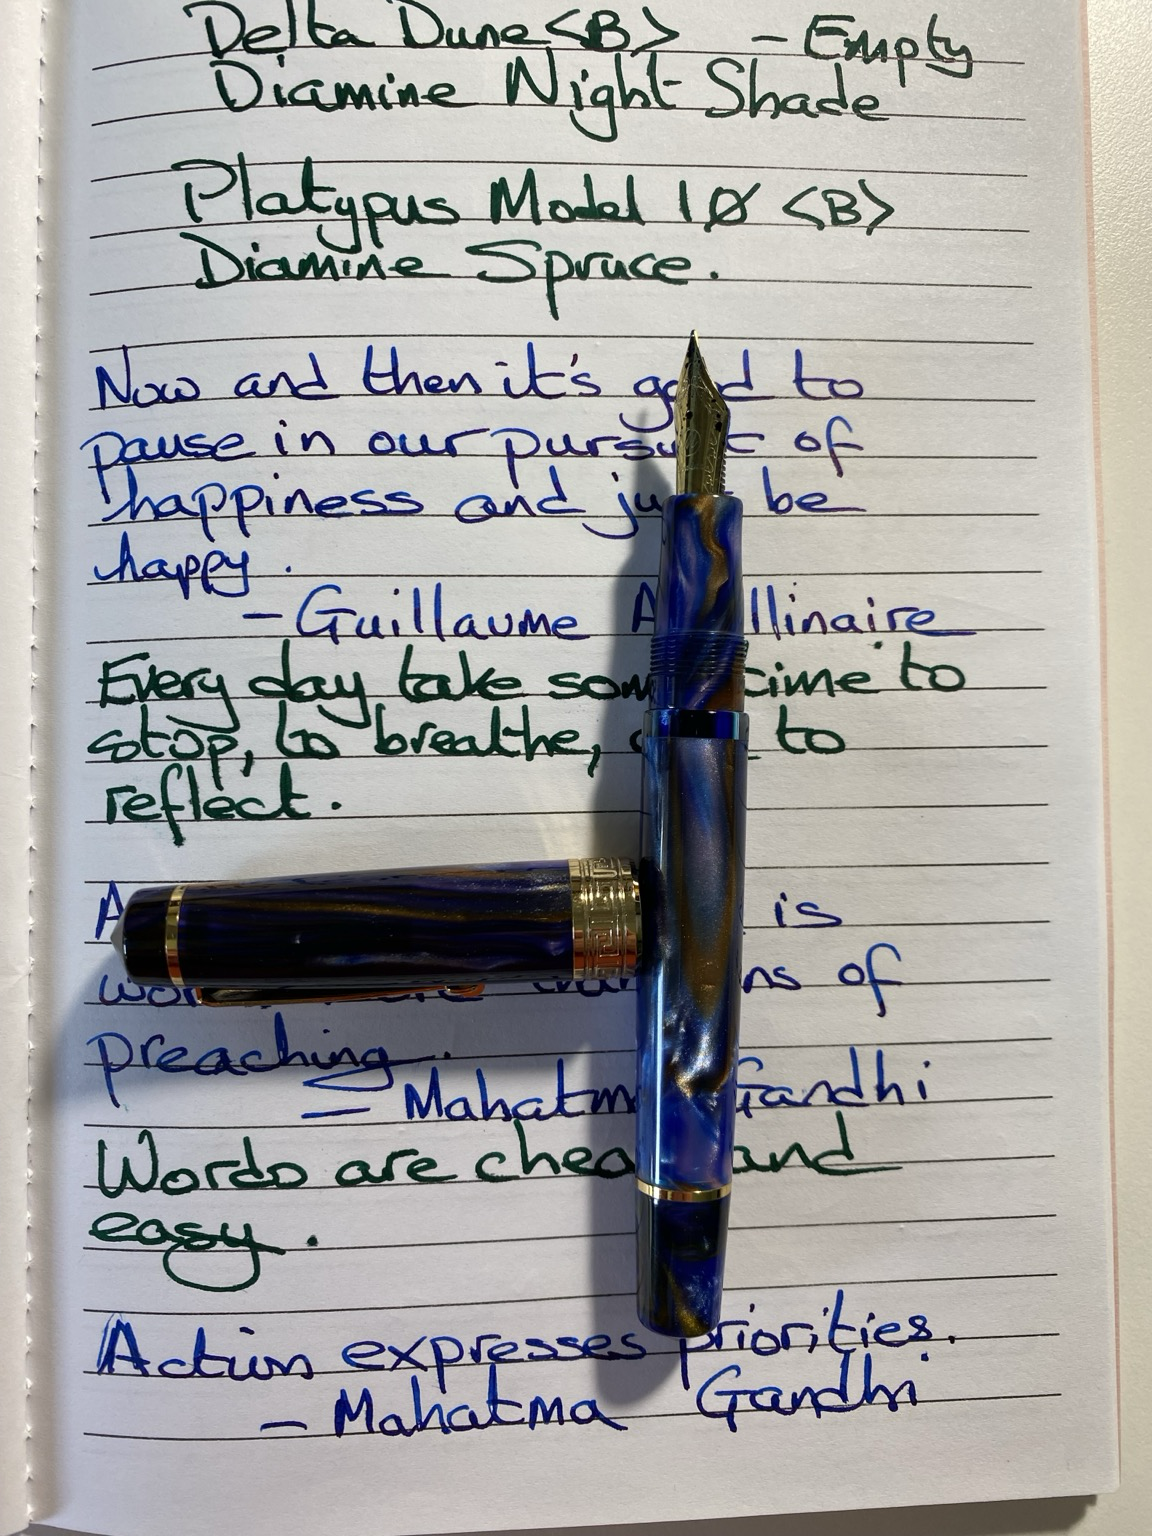 Delta Dune <B> - Empty
Diamine Night Shade
Platypus Model 1Ø <B>
Diamine Spruce.
Now and then it's good to
pause in our pursuit of
happiness and just be
happy.
- Guillaume A llinaire
Every day take some time to
stop, to breathe, to
reflect.
is
of
preaching.
- Mahatma Gandhi
Words are cheap and
easy.
Action expresses priorities.
- Mahatma Gandhi